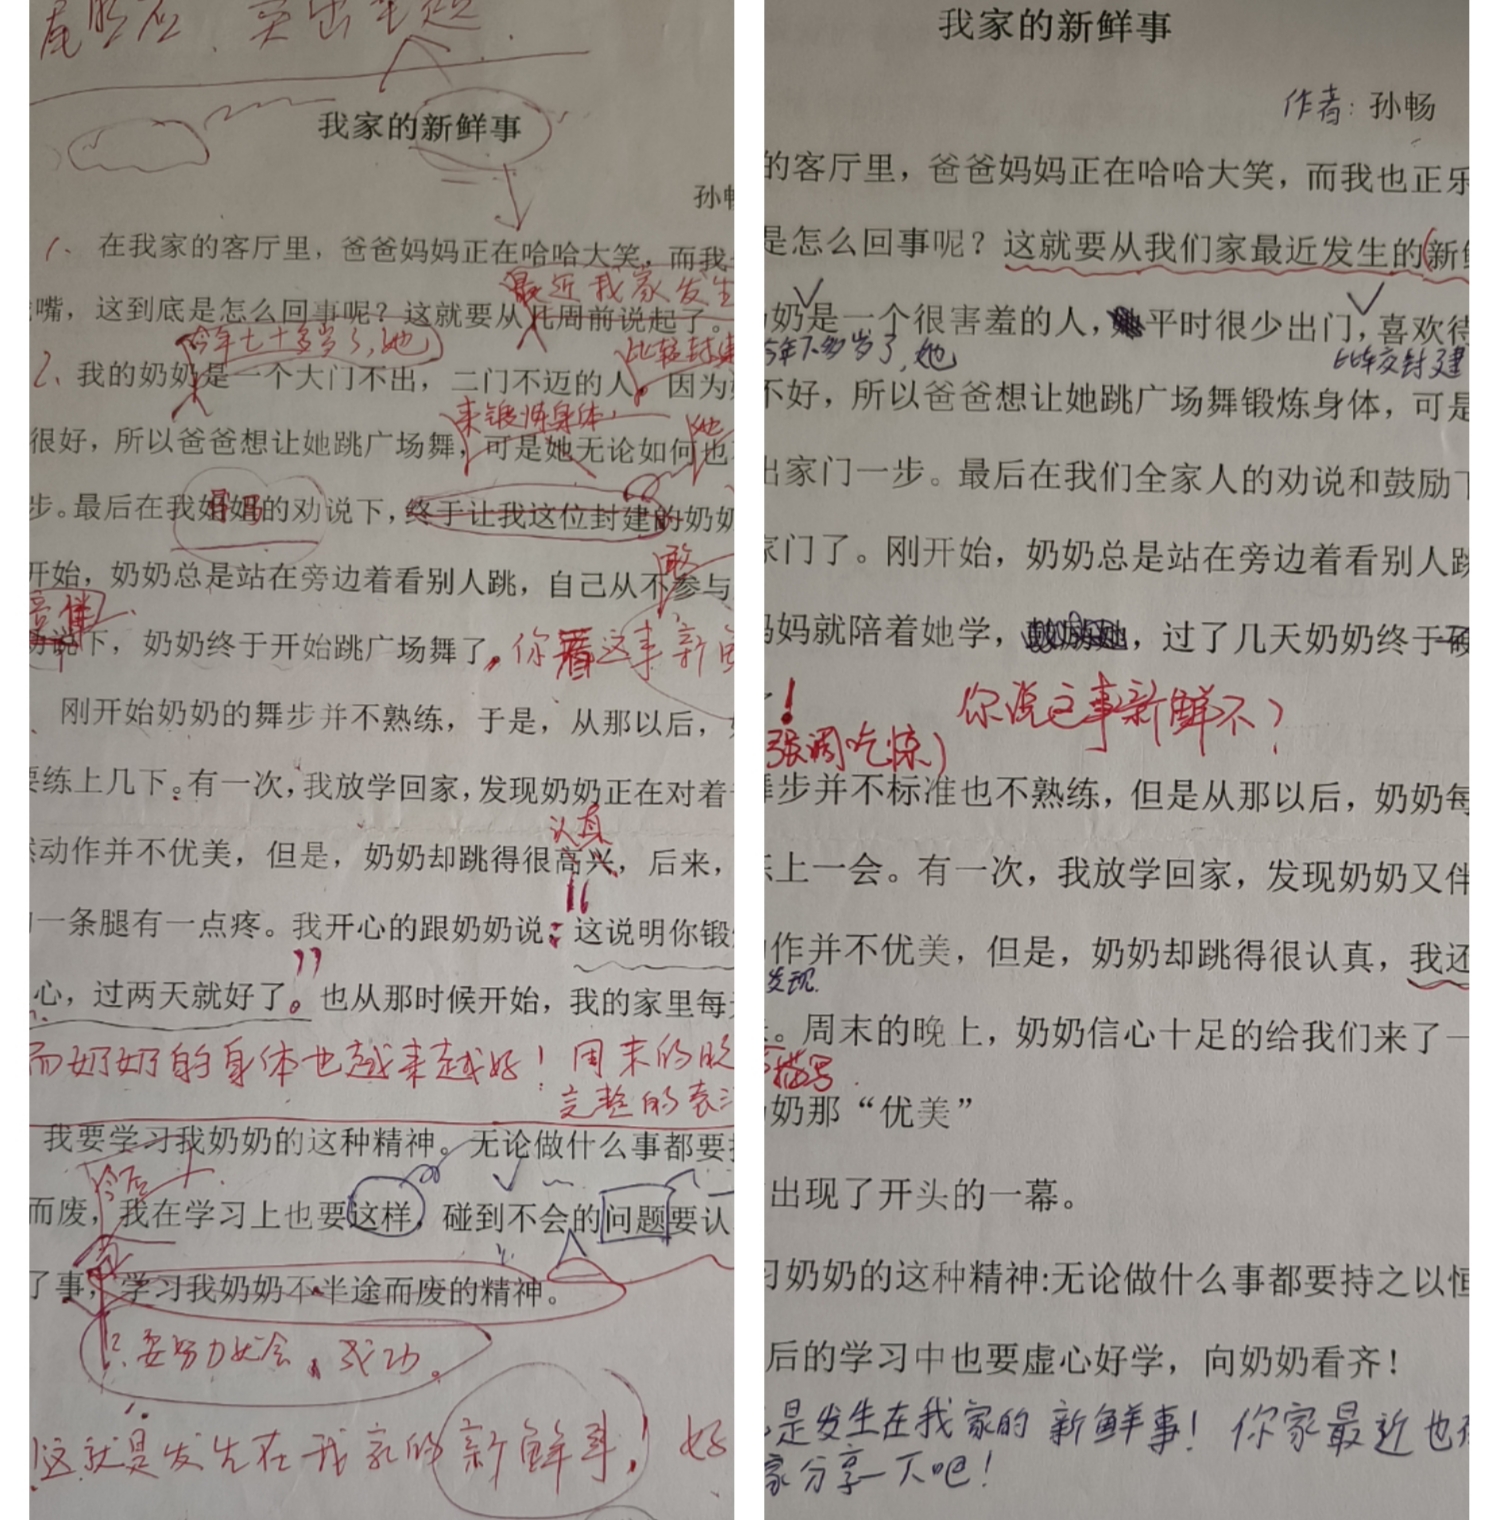 尾照应、突出主题.
我家的新鲜事
孙畅
1、在我家的客厅里，爸爸妈妈正在哈哈大笑，而我
最近我家发生
嘴，这到底是怎么回事呢？这就要从几周前说起了。
今年七十多岁了，她
比较封建
2、我的奶奶是一个大门不出，二门不迈的人。因为
来锻炼身体，
她
很好，所以爸爸想让她跳广场舞，可是她无论如何也
步。最后在我妈妈的劝说下，终于让我这位封建的奶奶
敢
开始，奶奶总是站在旁边着看别人跳，自己从不参与
说下，奶奶终于开始跳广场舞了。你看这事新
刚开始奶奶的舞步并不熟练，于是，从那以后，
要练上几下。有一次，我放学回家，发现奶奶正在对着
认真
动作并不优美，但是，奶奶却跳得很高兴，后来，
一条腿有一点疼。我开心的跟奶奶说：“这说明你锻
心，过两天就好了。”也从那时候开始，我的家里每
而奶奶的身体也越来越好！周末的晚
完整的表
我要学习我奶奶的这种精神。无论做什么事都要
今后
而废，我在学习上也要这样，碰到不会的问题要认
了事，学习我奶奶不半途而废的精神。
只要努力就会成功。
这就是发生在我家的新鲜事！好
我家的新鲜事
作者：孙畅
的客厅里，爸爸妈妈正在哈哈大笑，而我也正乐
是怎么回事呢？这就要从我们家最近发生的(新鲜
奶是一个很害羞的人，平时很少出门，喜欢待
多岁了，她
比较封建
不好，所以爸爸想让她跳广场舞锻炼身体，可是
出家门一步。最后在我们全家人的劝说和鼓励下
家门了。刚开始，奶奶总是站在旁边着看别人跳
妈妈就陪着她学，，过了几天奶奶终于
！ 你说这事新鲜不？
强调吃惊）
舞步并不标准也不熟练，但是从那以后，奶奶每
练上一会。有一次，我放学回家，发现奶奶又伴
动作并不优美，但是，奶奶却跳得很认真，我还
发现
。周末的晚上，奶奶信心十足的给我们来了一
描写
奶奶那“优美”
出现了开头的一幕。
习奶奶的这种精神:无论做什么事都要持之以恒
后的学习中也要虚心好学，向奶奶看齐！
是发生在我家的新鲜事！你家最近也
家分享一下吧！